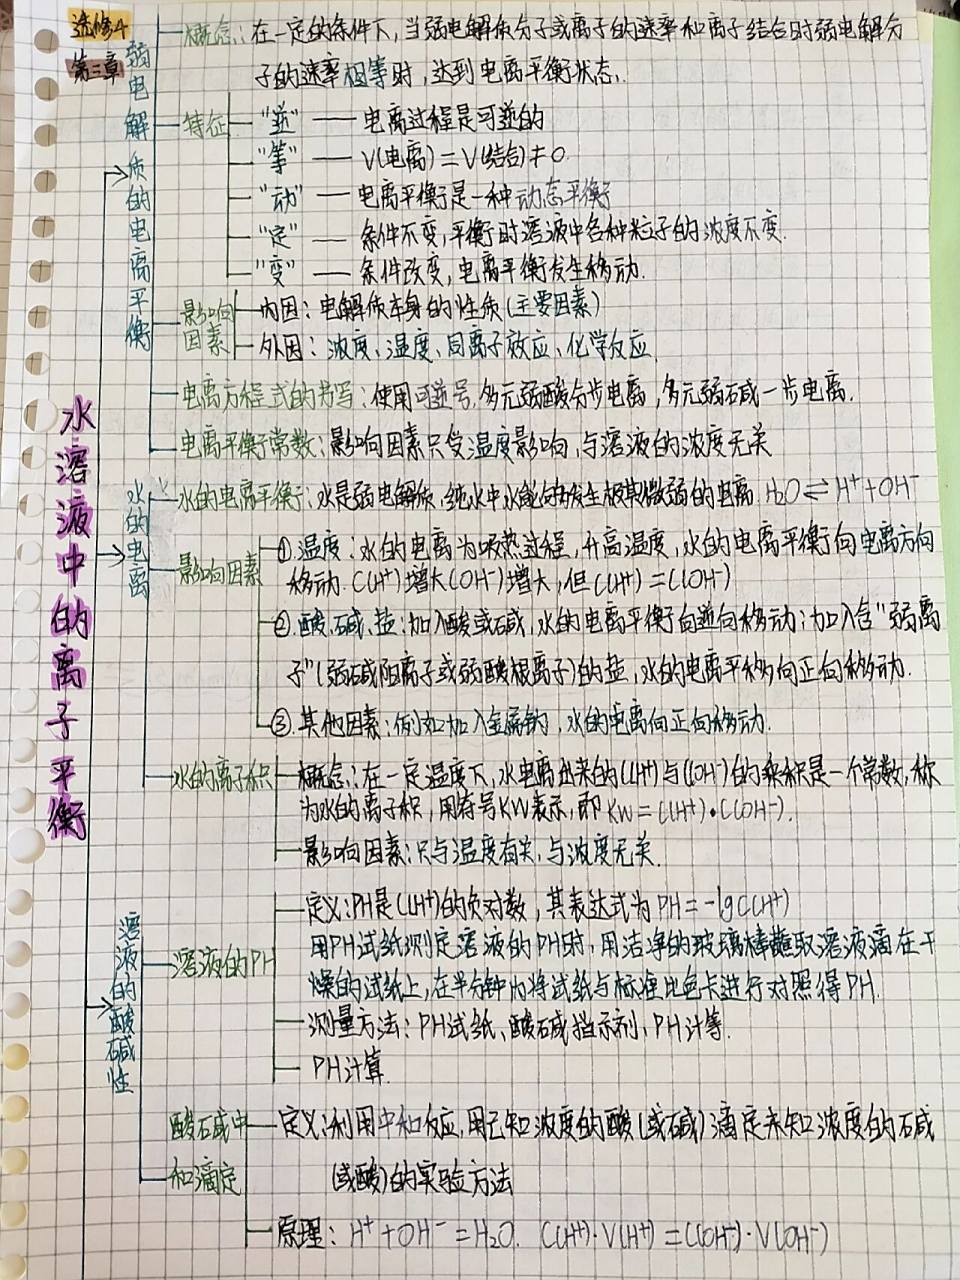 选修4
第三章
水溶液中的离子平衡
弱电解质的电离平衡
概念：在一定的条件下，当弱电解质分子或离子的速率和离子结合时弱电解分
子的速率相等时，达到电离平衡状态.
特征
"逆" —— 电离过程是可逆的
"等" —— V(电离)=V(结合)≠0
"动" —— 电离平衡是一种动态平衡
"定" —— 条件不变,平衡时溶液中各种粒子的浓度不变.
"变" —— 条件改变,电离平衡发生移动.
影响因素
内因：电解质本身的性质(主要因素)
外因：浓度、温度、同离子效应、化学反应
电离方程式的书写：使用可逆号,多元弱酸分步电离，多元弱碱一步电离.
电离平衡常数：影响因素只受温度影响,与溶液的浓度无关
水的电离
水的电离平衡：水是弱电解质,纯水中水能够发生极其微弱的电离.H₂O⇌H⁺+OH⁻
影响因素
①.温度：水的电离为吸热过程,升高温度,水的电离平衡向电离方向
移动.C(H⁺)增大C(OH⁻)增大,但C(H⁺)=C(OH⁻)
②.酸、碱、盐：加入酸或碱,水的电离平衡向逆向移动；加入含"弱离
子"(弱碱阳离子或弱酸根离子)的盐,水的电离平移向正向移动.
③.其他因素：例如加入金属钠,水的电离向正向移动.
水的离子积
概念：在一定温度下,水电离出来的C(H⁺)与C(OH⁻)的乘积是一个常数,称
为水的离子积,用符号KW表示,即KW=C(H⁺)·C(OH⁻).
影响因素：只与温度有关,与浓度无关.
溶液的酸碱性
溶液的PH
定义：PH是C(H⁺)的负对数，其表达式为PH=-lgC(H⁺)
用PH试纸测定溶液的PH时,用洁净的玻璃棒蘸取溶液滴在干
燥的试纸上,在半分钟内将试纸与标准比色卡进行对照得PH.
测量方法：PH试纸、酸碱指示剂、PH计等.
PH计算.
酸碱中和滴定
定义：利用中和反应,用已知浓度的酸(或碱)滴定未知浓度的碱
(或酸)的实验方法
原理：H⁺+OH⁻=H₂O. C(H⁺)·V(H⁺)=C(OH⁻)·V(OH⁻)